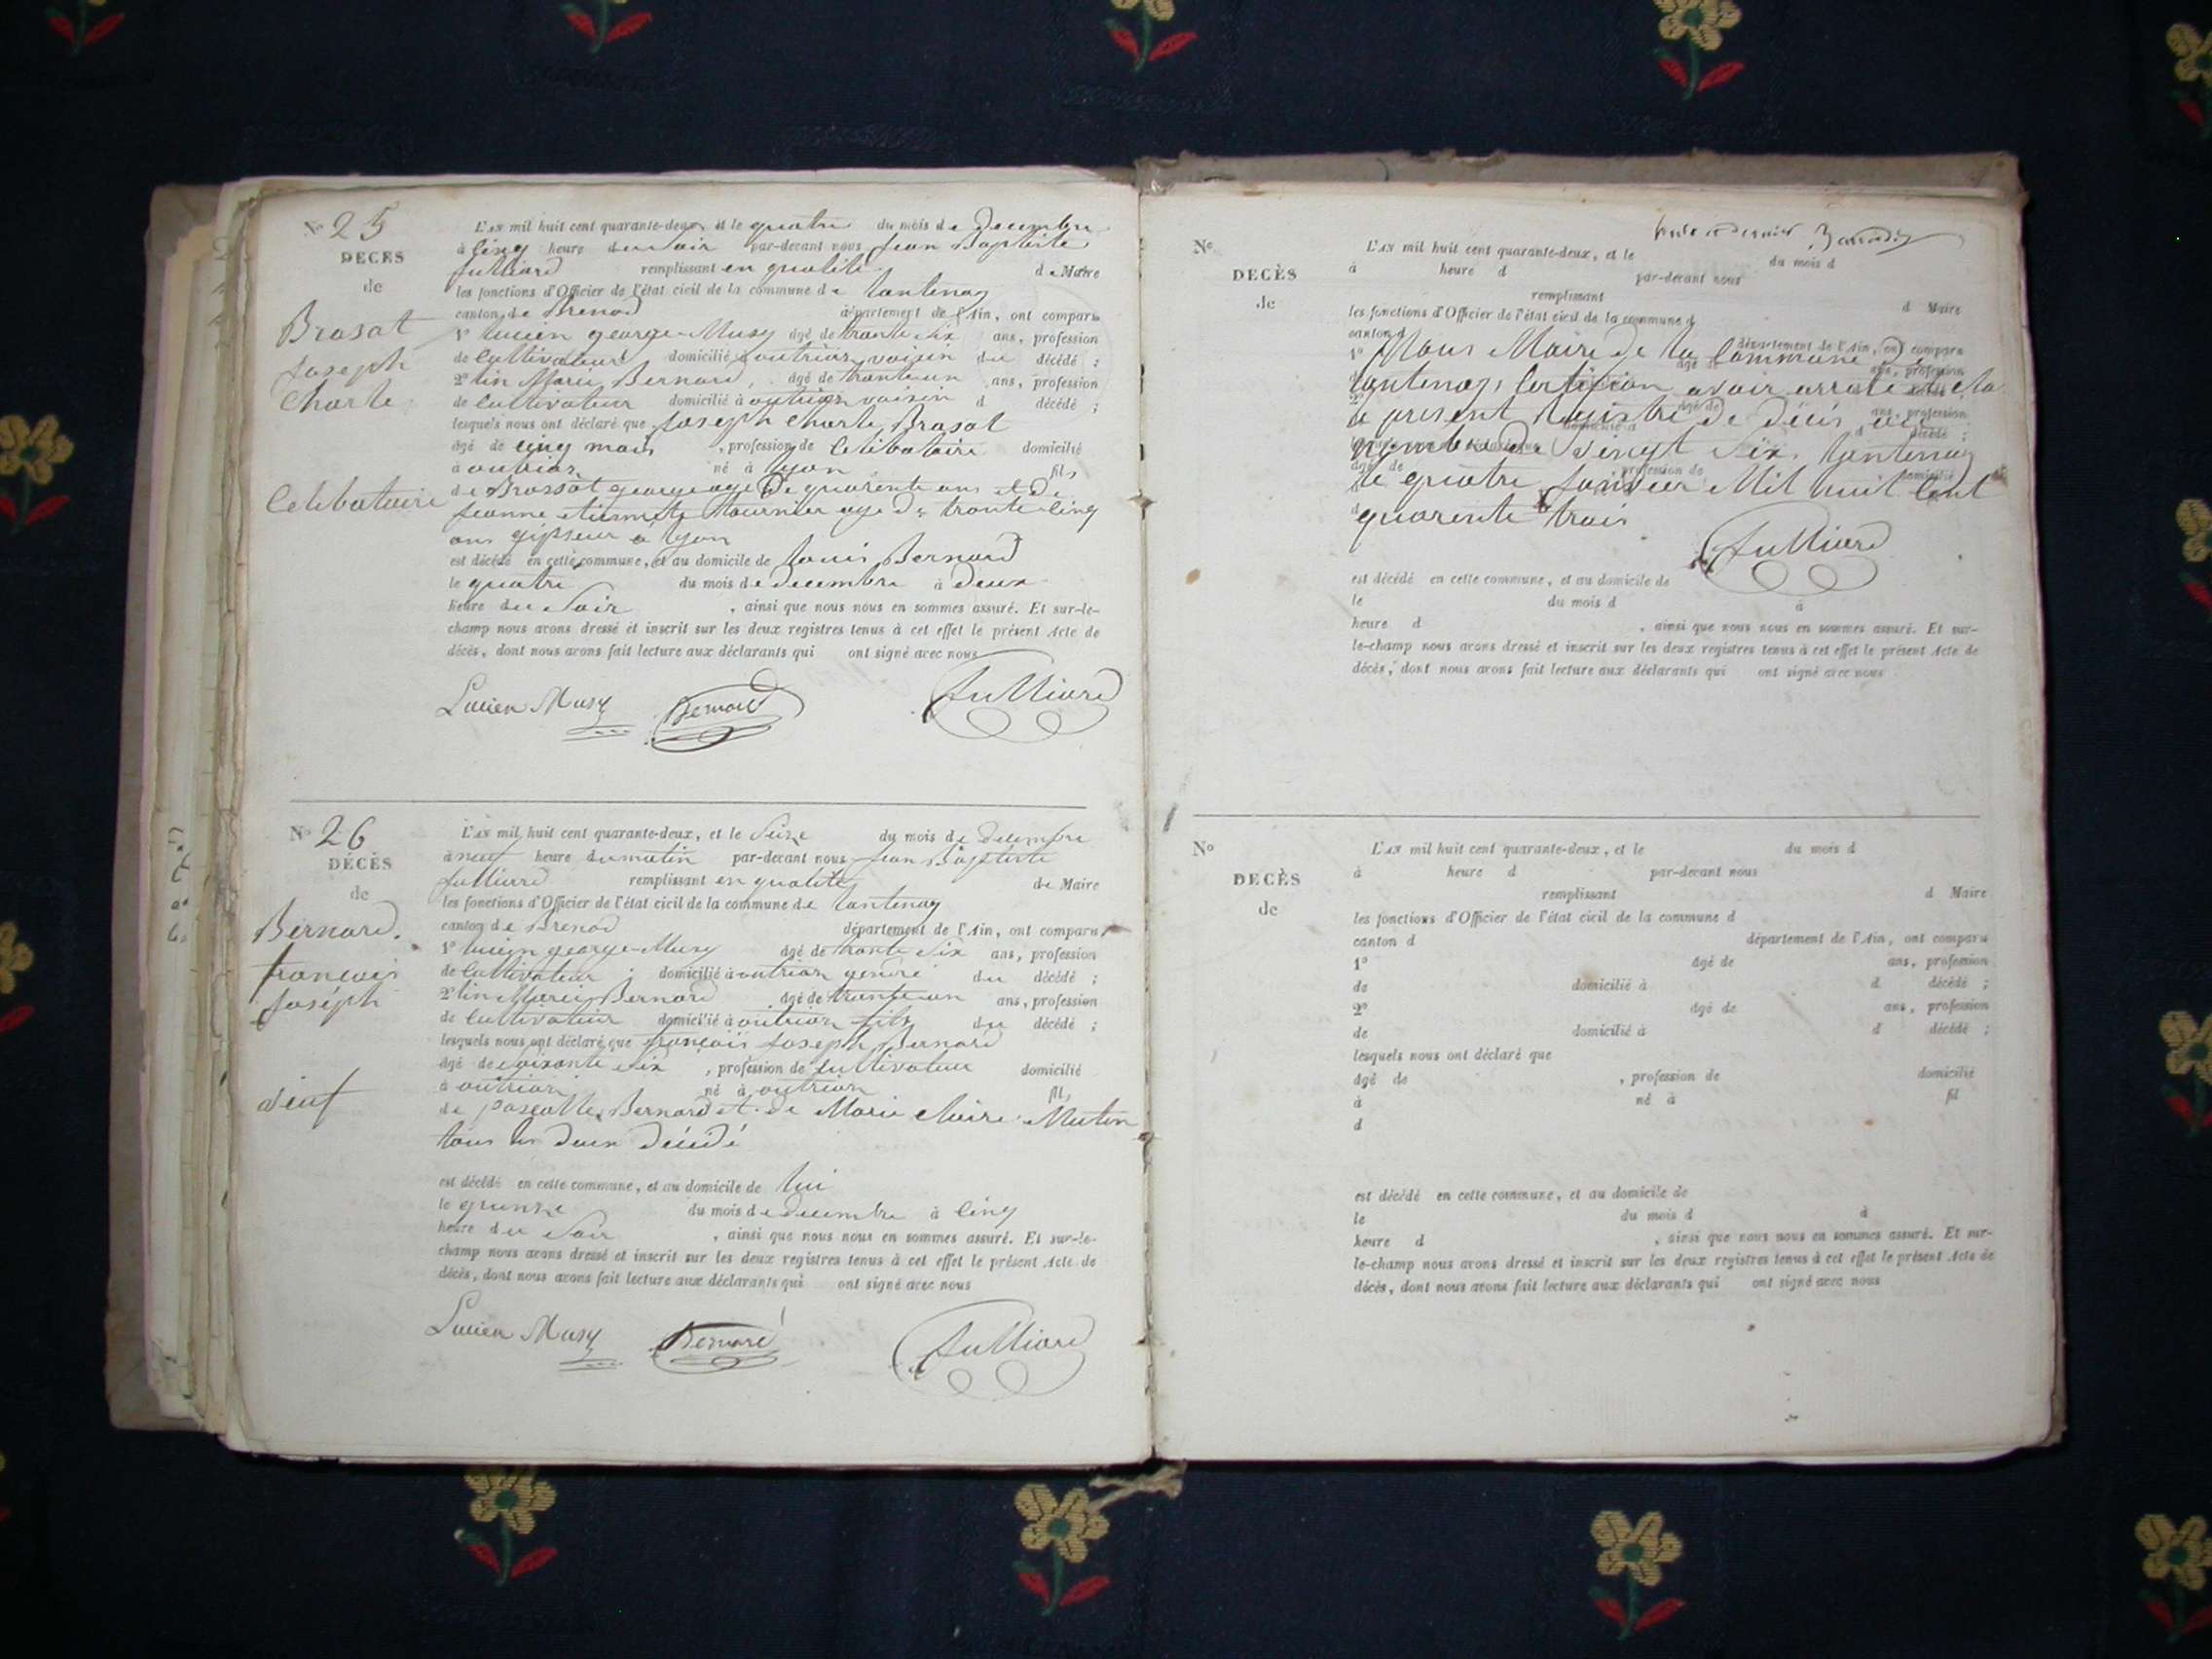 N° 25
DECES
de
Brasat
Joseph
Charle
Celibataire
L'AN mil huit cent quarante-deux et le quatre du mois de Decembre
à cinq heure du soir par-devant nous Jean Baptiste
Julliard remplissant en qualité de Maire
les fonctions d'Officier de l'état civil de la commune de Lantenay
canton de Brenod département de l'Ain, ont comparu
1° Lucien george Musy âgé de trante six ans, profession
de Cultivateur domicilié à outriar voisin du décédé ;
2° lin Marie Bernard, âgé de trante un ans, profession
de Cultivateur domicilié à outriar voisin d décédé ;
lesquels nous ont déclaré que Joseph Charle Brasat
âgé de cinq mois, profession de Celibataire domicilié
à outriar né à lyon fils
de Brassat george age De quarente ans et de
Jeanne etiennete tournier age De trante cinq
ans gipseur a lyon
est décédé en cette commune, et au domicile de Louis Bernard
le quatre du mois de decembre à deux
heure du soir, ainsi que nous nous en sommes assuré. Et sur-le-
champ nous avons dressé et inscrit sur les deux registres tenus à cet effet le présent Acte de
décès, dont nous avons fait lecture aux déclarants qui ont signé avec nous
Lucien Musy Bernard Julliard
N° 26
DÉCÈS
de
Bernard
francois
Joseph
veuf
L'AN mil huit cent quarante-deux, et le Seize du mois de decembre
à neuf heure du matin par-devant nous Jean Baptiste
Julliard remplissant en qualité de Maire
les fonctions d'Officier de l'état civil de la commune de Lantenay
canton de Brenod département de l'Ain, ont comparu
1° Lucien george Musy âgé de trante six ans, profession
de Cultivateur domicilié à outriar gendre du décédé ;
2° lin Marie Bernard âgé de trante un ans, profession
de Cultivateur domicilié à outriar fils du décédé ;
lesquels nous ont déclaré que françois Joseph Bernard
âgé de soixante six, profession de Cultivateur domicilié
à outriar né à outriar fils
de pascalle Bernard et de Marie Claire Mutin
tous les deux décédé
est décédé en cette commune, et au domicile de lui
le quinze du mois de decembre à cinq
heure du soir, ainsi que nous nous en sommes assuré. Et sur-le-
champ nous avons dressé et inscrit sur les deux registres tenus à cet effet le présent Acte de
décès, dont nous avons fait lecture aux déclarants qui ont signé avec nous
Lucien Musy Bernard Julliard
N°
DECÈS
de
L'AN mil huit cent quarante-deux, et le du mois d
à heure d par-devant nous
remplissant d Maire
les fonctions d'Officier de l'état civil de la commune d
canton d département de l'Ain, ont comparu
Nous Maire de la Commune De
Lantenay, Certifion avoir arreté et clo
le present Registre De décès, au
nombre De Vingt Six. Lantenay
le quatre Janvier Mil huit Cent
quarente trois
Julliard
est décédé en cette commune, et au domicile de
le du mois d à
heure d , ainsi que nous nous en sommes assuré. Et sur-
le-champ nous avons dressé et inscrit sur les deux registres tenus à cet effet le présent Acte de
décès, dont nous avons fait lecture aux déclarants qui ont signé avec nous
N°
DECÈS
de
L'AN mil huit cent quarante-deux, et le du mois d
à heure d par-devant nous
remplissant d Maire
les fonctions d'Officier de l'état civil de la commune d
canton d département de l'Ain, ont comparu
1° âgé de ans, profession
de domicilié à d décédé ;
2° âgé de ans, profession
de domicilié à d décédé ;
lesquels nous ont déclaré que
âgé de , profession de domicilié
à né à fil
d
est décédé en cette commune, et au domicile de
le du mois d à
heure d , ainsi que nous nous en sommes assuré. Et sur-
le-champ nous avons dressé et inscrit sur les deux registres tenus à cet effet le présent Acte de
décès, dont nous avons fait lecture aux déclarants qui ont signé avec nous